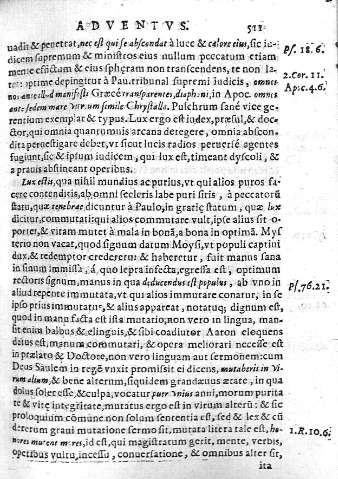 ADVENTVS. 511
uadit & penetrat, nec est qui se abscondat à luce & calore eius, sic iu-
dicem supremum & ministros eius nullum peccatum etiam
mente effictum & eius sphęram non transcendens, te non la-
tet: optime depingitur à Pau. tribunal supremi iudicis, omnes
nos manifesti Gręcè transparentes, diaphani, in Apoc. omnes
ante sedem mare vitreum simile Chrystallo. Pulchrum sanè vice ge-
rentium exemplar & typus. Lux ergo est index, præsul, & doc-
tor, qui omnia quantumuis arcana detegere, omnia abscon-
dita peruestigare debet, vt sicut lucis radios peruersè agentes
fugiunt, sic & ipsum iudicem, qui lux est, timeant dyscoli, &
a prauis abstineant operibus.
Lux estis, qua nihil mundius ac purius, vt qui alios puros fa-
cere contenditis, ab omni sceleris labe puri sitis, à peccatorū
statu, quæ tenebrae dicuntur à Paulo, in gratię statum, quæ lux
dicitur, commutati: qui alios commutare vult, ipse alius sit o-
portet, & vitam mutet à mala in bonā, a bona in optimā. My-
terio non vacat, quod signum datum Moysi, vt populi captiui
dux, & redemptor crederetur & haberetur, fuit manus sana
in sinum immissa, à quo lepra infecta, egressa est, optimum
rectoris signum, manus in qua deducendus est populus, ab vno in
aliud repente immutata, vt qui alios immutare conatur, in se
ipso prius immutatus, & alius appareat, notatuq; dignum est,
quod in manu facta est ista mutatio, non vero in lingua, man-
sit enim balbus & elinguis, & sibi coadiutor Aaron eloquens
datus est, manum commutari, & opera meliorari necesse est
in prælato & Doctore, non vero linguam aut sermonem: cum
Deus Saulem in regē vnxit promisit ei dicens, mutaberis in vi-
rum alium, & bene alterum, siquidem grandæuus ætate, in qua
dolus solet esse, & culpa, vocatur puer vnius anni, morum purita
te & vitę integritate, mutatus ergo est in virum alterū: & sic
proloquium cōmune non solum sententia est, sed & lex & cū
dererum graui mutatione sermo sit, mutata litera tale est, ho-
nores mutent mores, id est, qui magistratum gerit, mente, verbis,
operibus vultu, incessu, conuersatione, & omnibus alter sit,
ita
Ps. 18. 6.
2. Cor. 11.
Apoc. 4. 6.
Ps. 76. 21.
1. R. 10. 6.